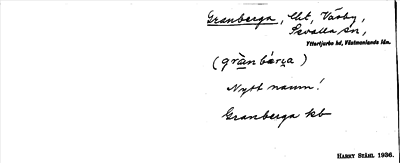 Granberga, lht, Väsby,
Sevalla sn,
Yttertjurbo hd, Västmanlands län.
(grànbárga)
Nytt namn!
Granberga kb
HARRY STÅHL 1936.